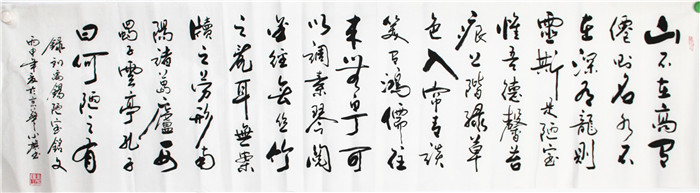 山不在高有
僊則名水不
在深有龍則
靈斯是陋室
惟吾德馨苔
痕上階綠草
色入帘青談
笑有鴻儒往
來無白丁可
以調素琴閱
金經無絲竹
之亂耳無案
牘之勞形南
陽諸葛廬西
蜀子雲亭孔子
曰何陋之有
錄劉禹錫陋室銘文
丙申年夏於京華